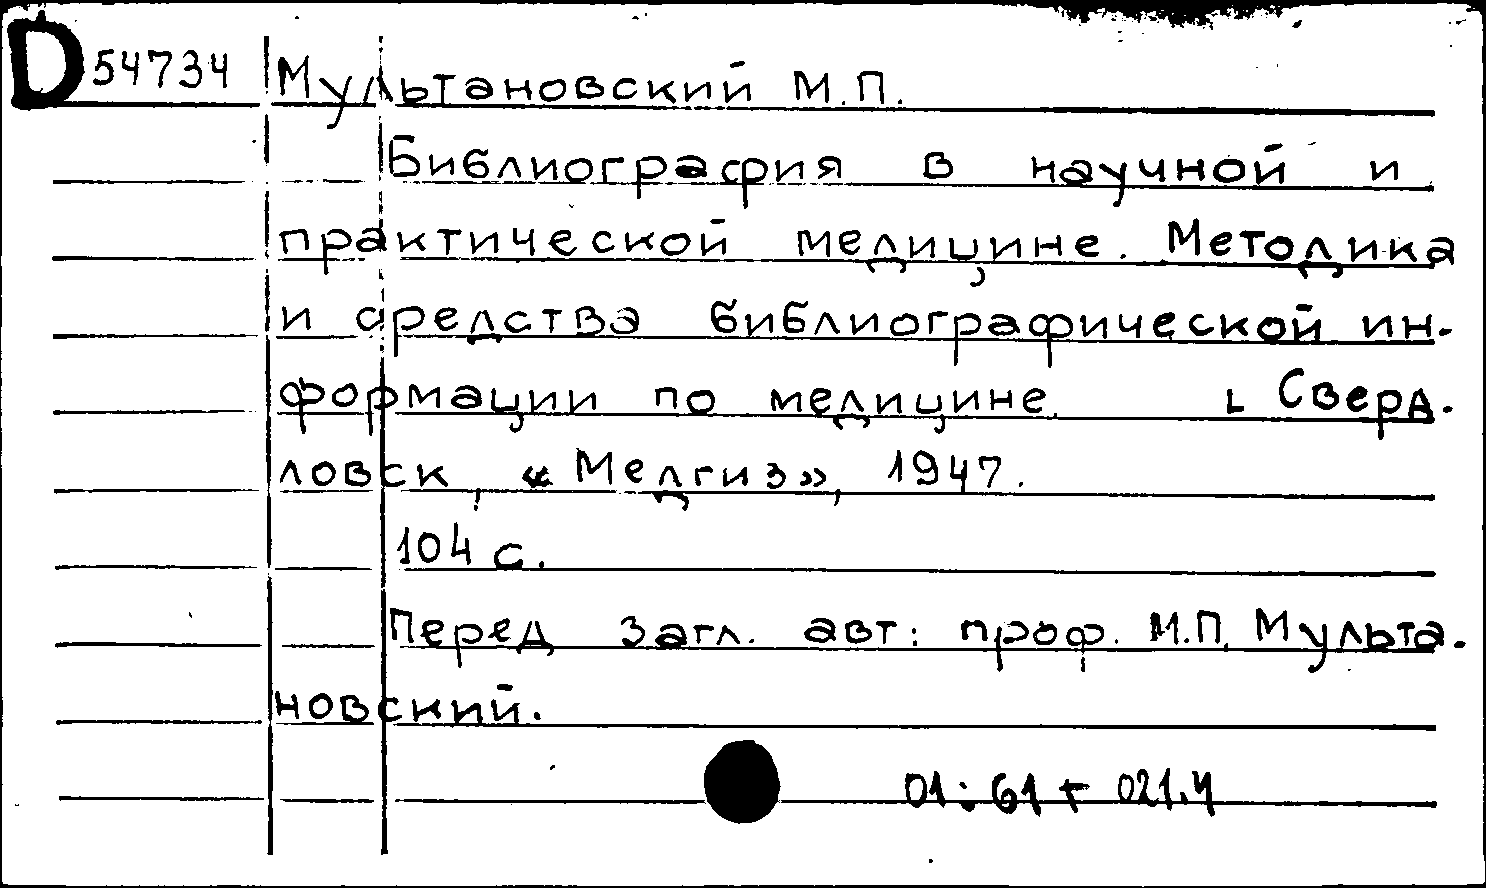 D 54734 Мультановский М.П.
Библиография в научной и
практической медицине. Методика
и средства библиографической ин-
формации по медицине. L Сверд-
ловск, «Медгиз», 1947.
104 с.
Перед загл. авт: проф. М.П. Мульта-
новский.
01:61 + 021.4